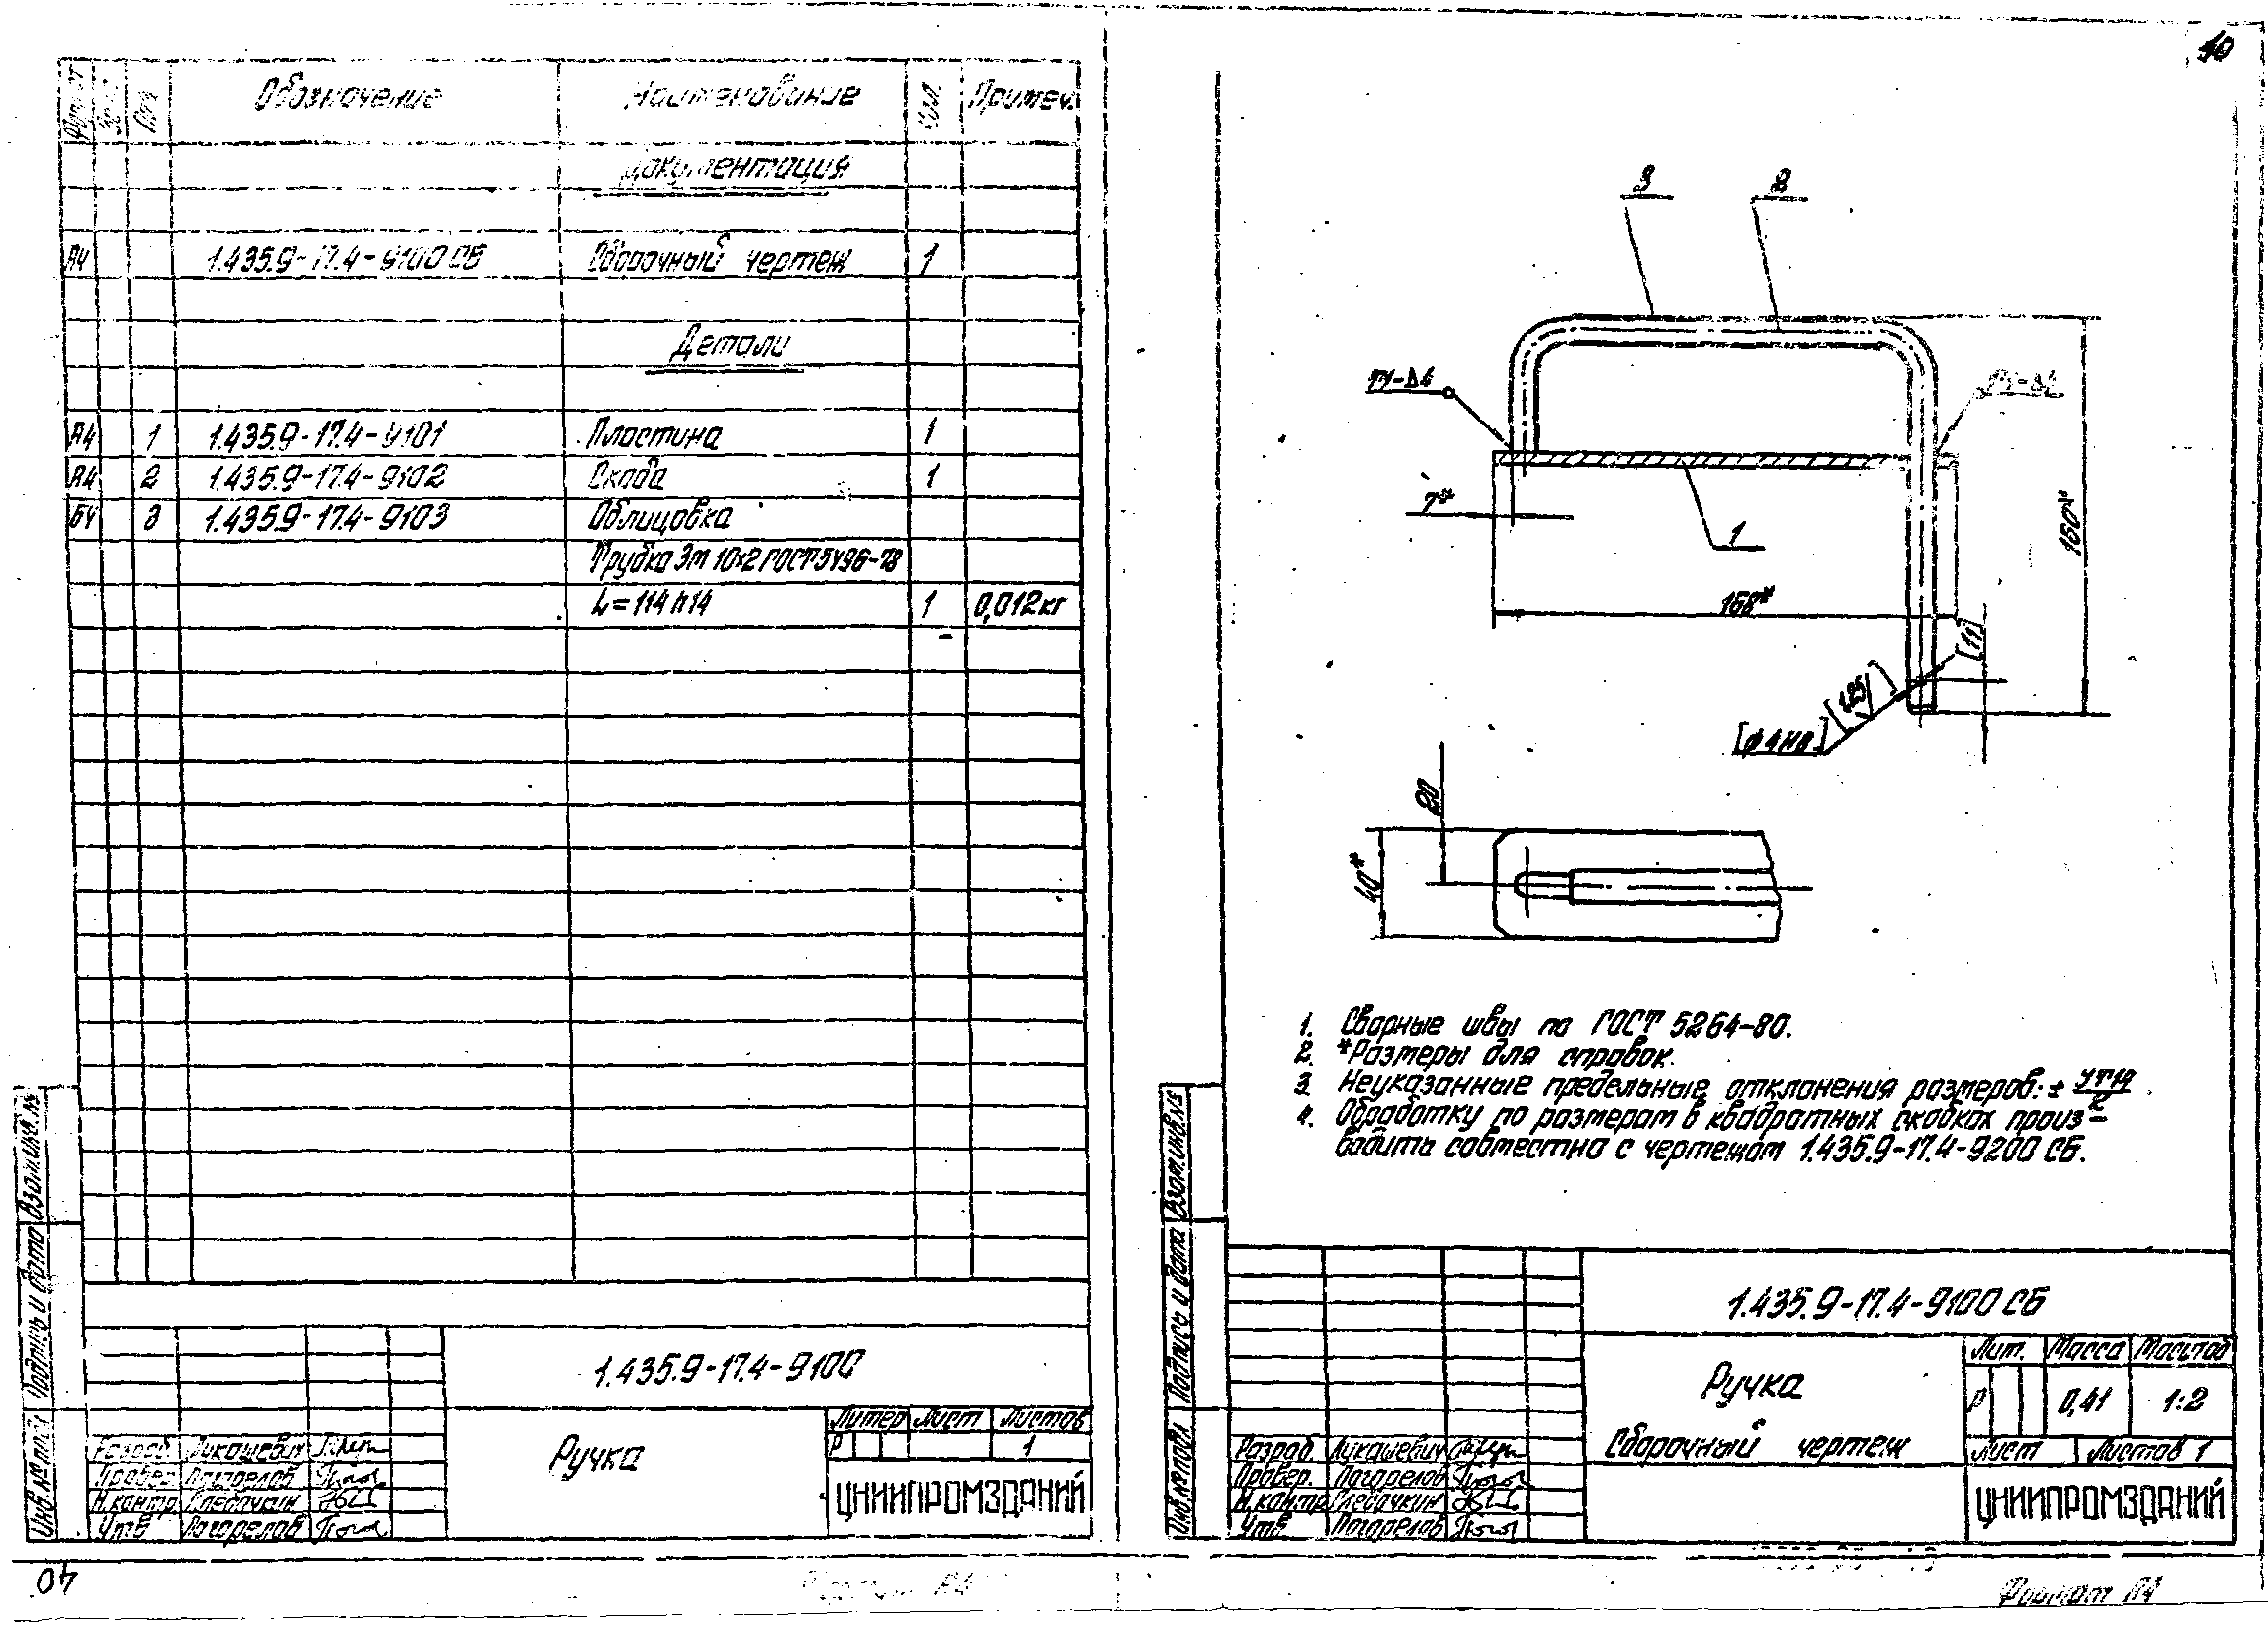 10
Формат Зона Поз. Обозначение Наименование Кол. Примеч.
Документация
А4 1.435.9-17.4-9100 СБ Сборочный чертеж 1
Детали
А4 1 1.435.9-17.4-9101 Пластина 1
А4 2 1.435.9-17.4-9102 Скоба 1
БЧ 3 1.435.9-17.4-9103 Облицовка
Трубка 3т 10х2 ГОСТ 5496-78
L=114 h14 1 0,012кг
Взам.инв.№
Подпись и дата
Инв.№ подл
1.435.9-17.4-9100
Ручка
Литер Лист Листов
Р 1
ЦНИИПРОМЗДАНИЙ
Разраб. Лукашевич
Провер. Погорелов
Н.контр. Слебачкин
Утв Погорелов
40
3 2
Т1-Δ4
Т1-Δ4
7*
1
168*
150*
[11]
[1,25]
[ф4Н8]
20
40*
1. Сварные швы по ГОСТ 5264-80.
2. *Размеры для справок.
3. Неуказанные предельные отклонения размеров: ± JT14/2
4. Обработку по размерам в квадратных скобках произ-
водить совместно с чертежом 1.435.9-17.4-9200 СБ.
Взам.инв.№
Подпись и дата
Инв.№ подл.
1.435.9-17.4-9100 СБ
Ручка
Сборочный чертеж
Лит. Масса Масштаб
Р 0,41 1:2
Лист Листов 1
ЦНИИПРОМЗДАНИЙ
Разраб. Лукашевич
Провер. Погорелов
Н.контр. Слебачкин
Утв Погорелов
Формат А4